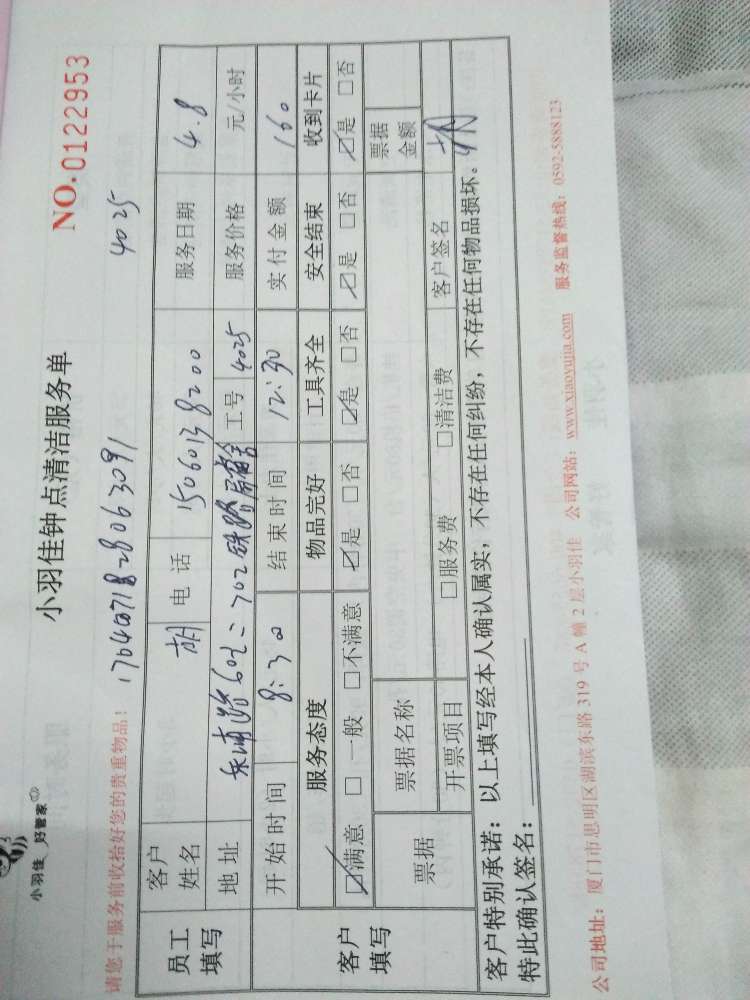 小羽佳 好管家
小羽佳钟点清洁服务单
NO.0122953
请您于服务前收拾好您的贵重物品！ 1704071828063091 4025
员工填写 客户姓名 胡 电话 15060138200 服务日期 4.8
地址 702铁路 工号 4025 服务价格 元/小时
客户填写 开始时间 8:30 结束时间 12:30 实付金额 160
服务态度 物品完好 工具齐全 安全结束 收到卡片
☑满意 □一般 □不满意 ☑是 □否 ☑是 □否 ☑是 □否 ☑是 □否
票据 票据名称 票据金额
开票项目 □服务费 □清洁费 客户签名 胡
客户特别承诺：以上填写经本人确认属实，不存在任何纠纷，不存在任何物品损坏。
特此确认签名：
公司地址：厦门市思明区湖滨东路 319 号 A 幢 2 层小羽佳 公司网站：www.xiaoyujia.com 服务监督热线：0592-5888123